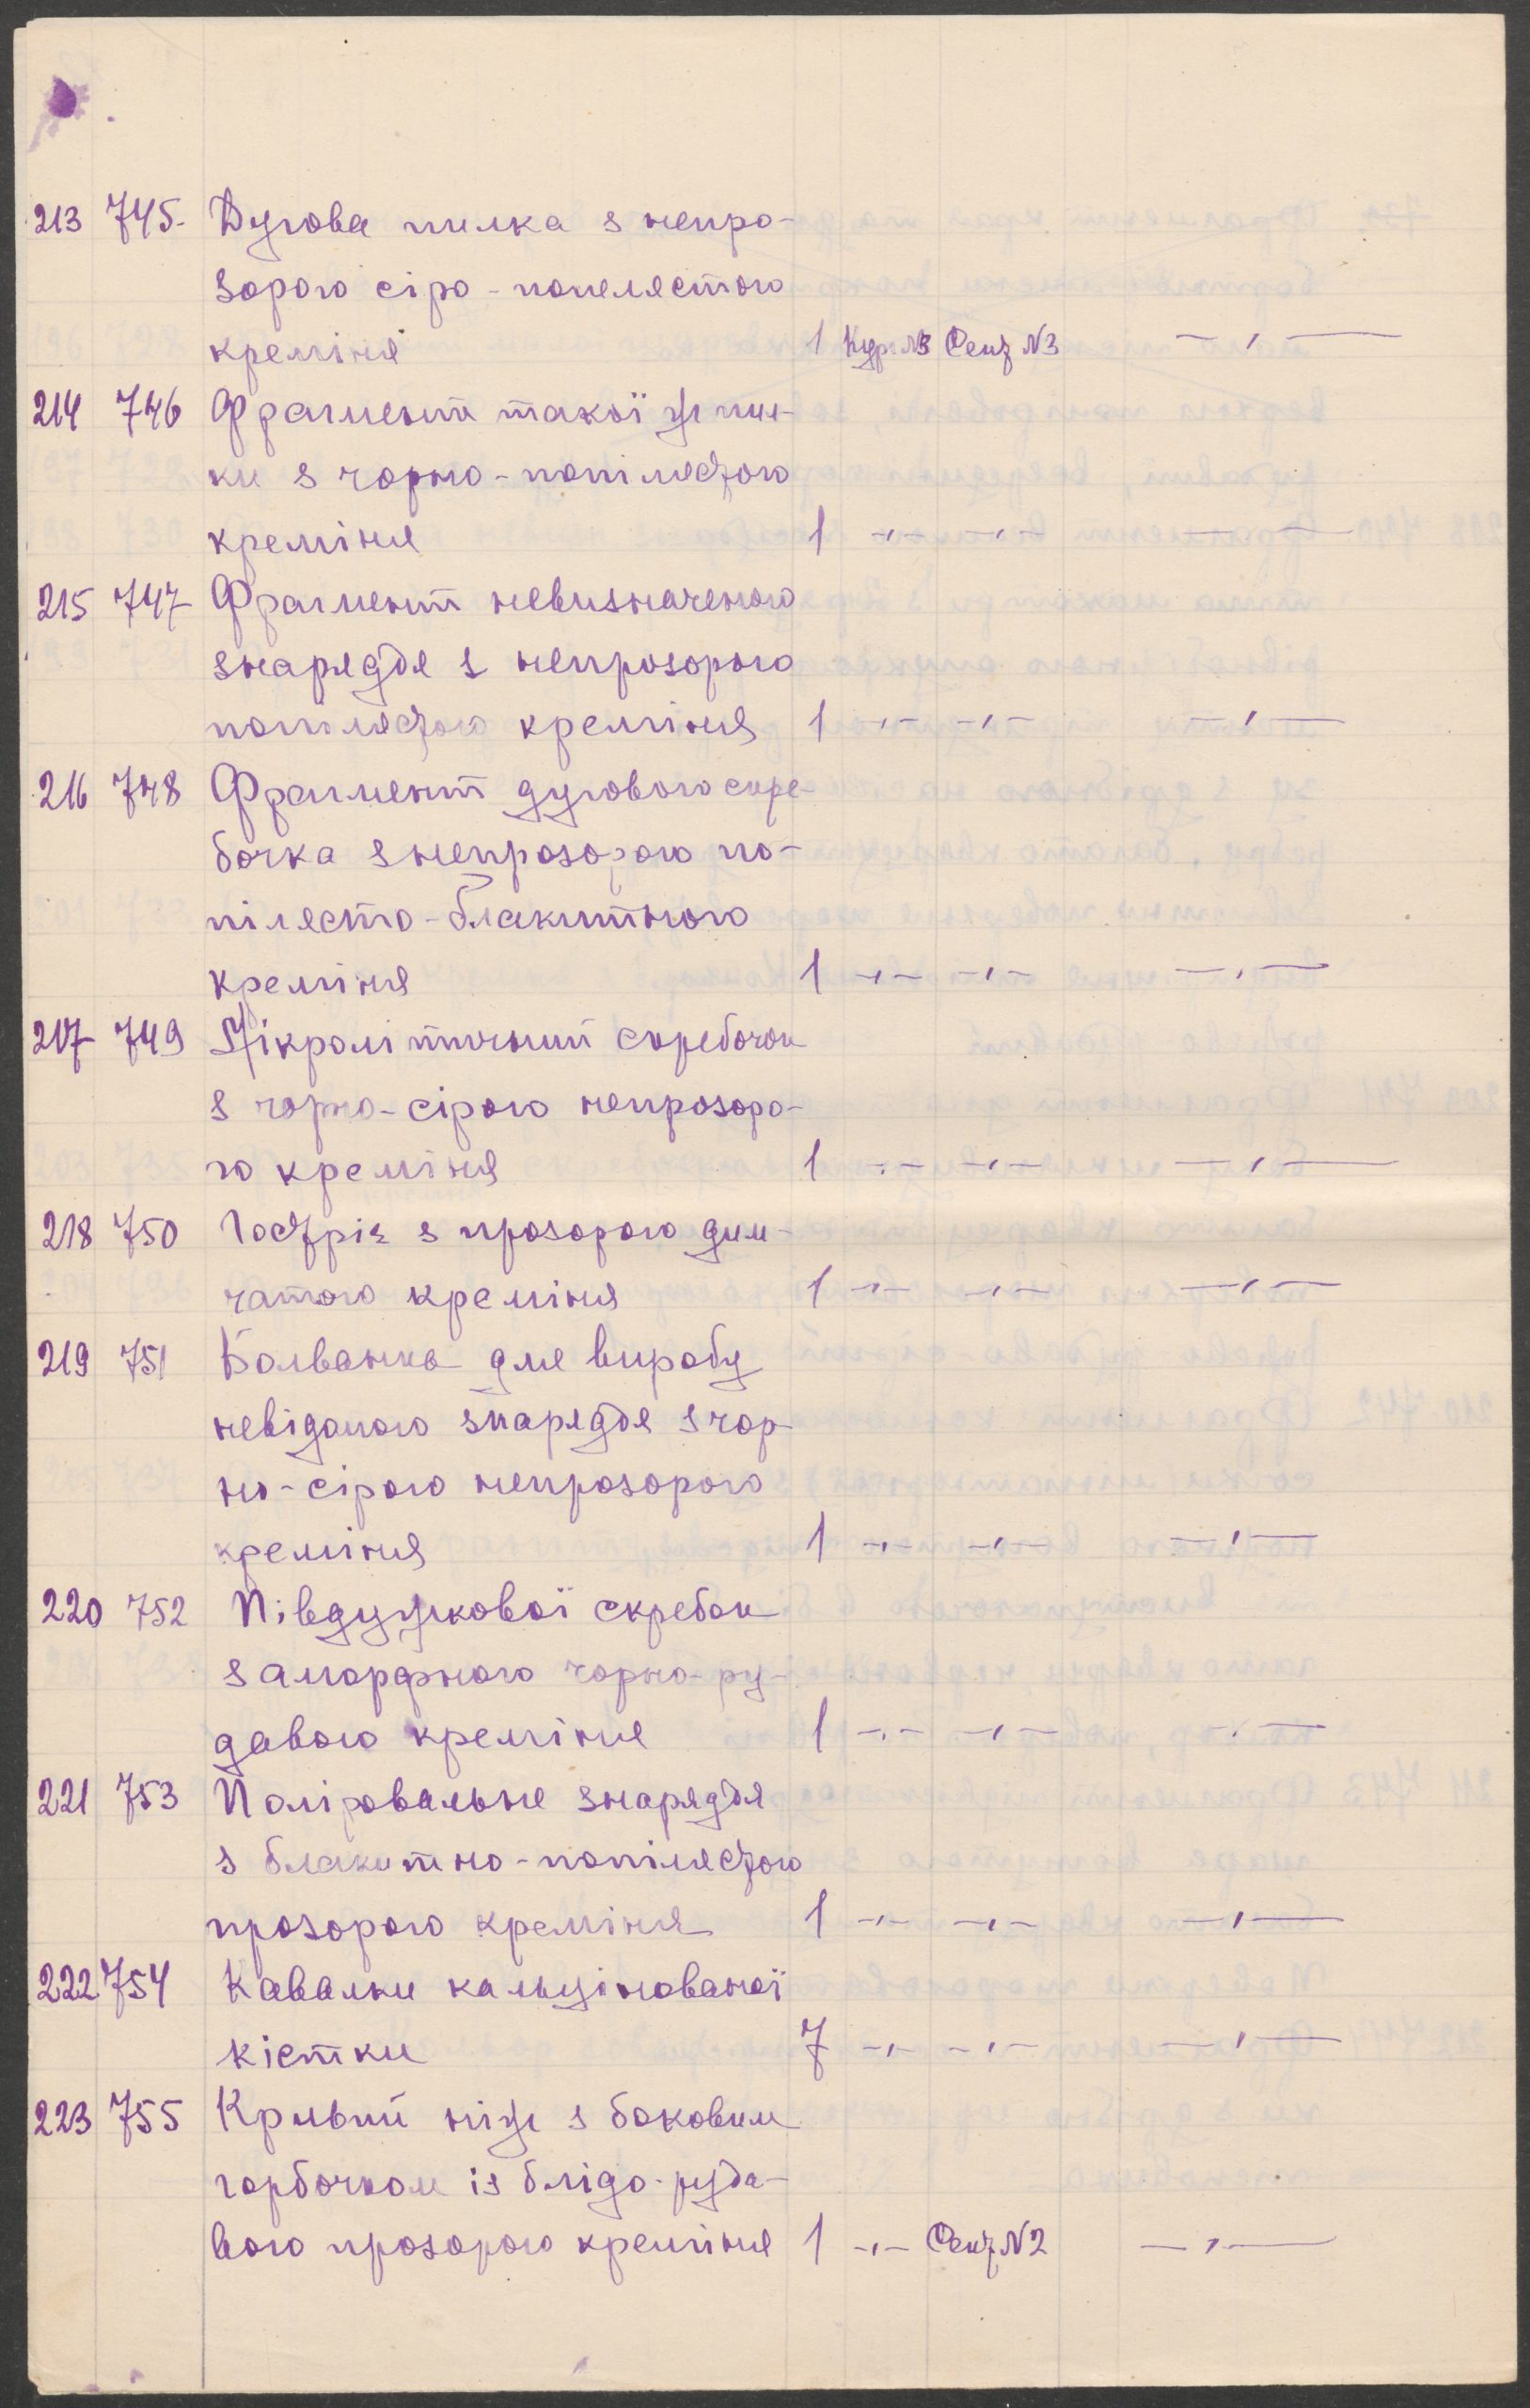 213 745. Дугова пилка з непро-
зорого сіро-попелястого
креміня 1 Кург №3 Секц №3 — „ —
214 746 Фрагмент такої ж пил-
ки з чорно-попілястого
креміня 1 -„- -„- — „ —
215 747 Фрагмент невизначеного
знаряддя з непрозорого
попілястого креміня 1 -„- -„- — „ —
216 748 Фрагмент дугового скре-
бочка з непрозорого по-
пілясто-блакитного
креміня 1 -„- -„- — „ —
217 749 Мікролітичний скребочок
з чорно-сірого непрозоро-
го креміня 1 -„- -„- — „ —
218 750 Гостріє з прозорого дим-
чатого креміня 1 -„- -„- — „ —
219 751 Болванка для виробу
невідомого знаряддя з чор-
но-сірого непрозорого
креміня 1 -„- -„- — „ —
220 752 Півдужкової скребок
з аморфного чорно-ру-
давого креміня 1 -„- -„- — „ —
221 753 Поліровальне знаряддя
з блакитно-попілястого
прозорого креміня 1 -„- -„- — „ —
222 754 Кавалки кальцінованої
кістки 7 -„- -„- — „ —
223 755 Кривий ніж з боковим
горбочком із блідо-руда-
вого прозорого креміня 1 -„- Секц №2 — „ —